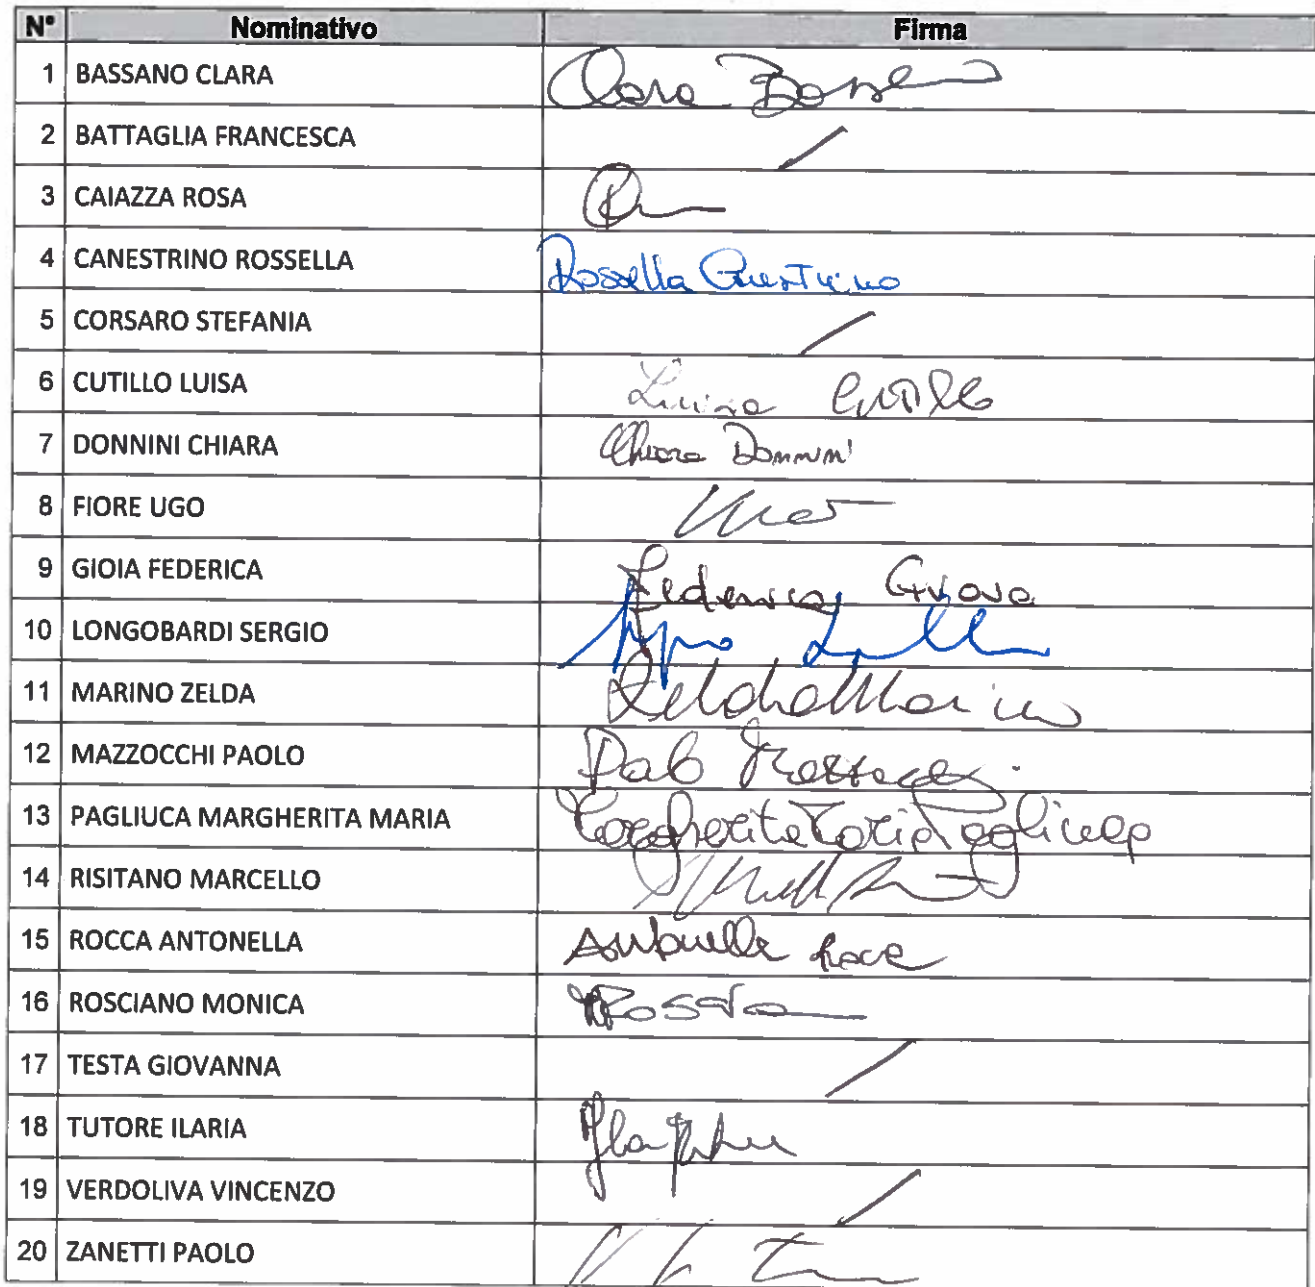 N° Nominativo Firma
1 BASSANO CLARA Clara Bassano
2 BATTAGLIA FRANCESCA /
3 CAIAZZA ROSA
4 CANESTRINO ROSSELLA Rossella Canestrino
5 CORSARO STEFANIA /
6 CUTILLO LUISA Luisa Cutillo
7 DONNINI CHIARA Chiara Donnini
8 FIORE UGO
9 GIOIA FEDERICA Federica Gioia
10 LONGOBARDI SERGIO
11 MARINO ZELDA Zelda Marino
12 MAZZOCCHI PAOLO Paolo Mazzocchi
13 PAGLIUCA MARGHERITA MARIA Margherita Maria Pagliuca
14 RISITANO MARCELLO
15 ROCCA ANTONELLA Antonella Rocca
16 ROSCIANO MONICA
17 TESTA GIOVANNA /
18 TUTORE ILARIA
19 VERDOLIVA VINCENZO /
20 ZANETTI PAOLO